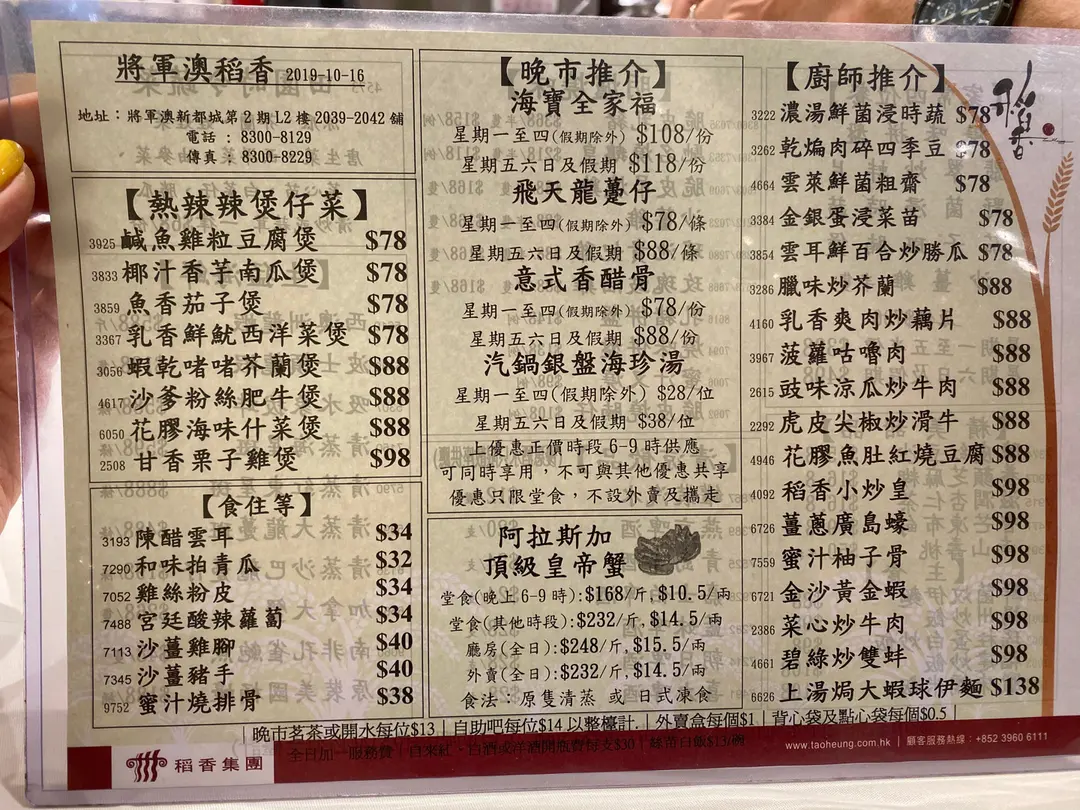 將軍澳稻香 2019-10-16
地址：將軍澳新都城第2期L2樓2039-2042舖
電話：8300-8129
傳真：8300-8229
【熱辣辣煲仔菜】
3925 鹹魚雞粒豆腐煲 $78
3833 椰汁香芋南瓜煲 $78
3859 魚香茄子煲 $78
3367 乳香鮮魷西洋菜煲 $78
3056 蝦乾啫啫芥蘭煲 $88
4617 沙爹粉絲肥牛煲 $88
6050 花膠海味什菜煲 $88
2508 甘香栗子雞煲 $98
【食住等】
3193 陳醋雲耳 $34
7290 和味拍青瓜 $32
7052 雞絲粉皮 $34
7488 宮廷酸辣蘿蔔 $34
7113 沙薑雞腳 $40
7345 沙薑豬手 $40
9752 蜜汁燒排骨 $38
【晚市推介】
海寶全家福
星期一至四(假期除外) $108/份
星期五六日及假期 $118/份
飛天龍躉仔
星期一至四(假期除外) $78/條
星期五六日及假期 $88/條
意式香醋骨
星期一至四(假期除外) $78/份
星期五六日及假期 $88/份
汽鍋銀盤海珍湯
星期一至四(假期除外) $28/位
星期五六日及假期 $38/位
上優惠正價時段6-9時供應
可同時享用，不可與其他優惠共享
優惠只限堂食，不設外賣及攜走
阿拉斯加
頂級皇帝蟹
堂食(晚上6-9時):$168/斤,$10.5/兩
堂食(其他時段):$232/斤,$14.5/兩
廳房(全日):$248/斤,$15.5/兩
外賣(全日):$232/斤,$14.5/兩
食法：原隻清蒸 或 日式凍食
【廚師推介】
稻香
3222 濃湯鮮菌浸時蔬 $78
3262 乾煸肉碎四季豆 $78
4664 雲萊鮮菌粗齋 $78
3384 金銀蛋浸菜苗 $78
3854 雲耳鮮百合炒勝瓜 $78
3286 臘味炒芥蘭 $88
4160 乳香爽肉炒藕片 $88
3967 菠蘿咕嚕肉 $88
2615 豉味涼瓜炒牛肉 $88
2292 虎皮尖椒炒滑牛 $88
4946 花膠魚肚紅燒豆腐 $88
4092 稻香小炒皇 $98
6726 薑蔥廣島蠔 $98
7559 蜜汁柚子骨 $98
6721 金沙黃金蝦 $98
2386 菜心炒牛肉 $98
4661 碧綠炒雙蚌 $98
6626 上湯焗大蝦球伊麵 $138
|晚市茗茶或開水每位$13|自助吧每位$14以整檯計.|外賣盒每個$1|背心袋及點心袋每個$0.5|
全日加一服務費|自來紅、白酒或洋酒開瓶費每支$30|絲苗白飯$13/碗
稻香集團
www.taoheung.com.hk | 顧客服務熱線：+852 3960 6111